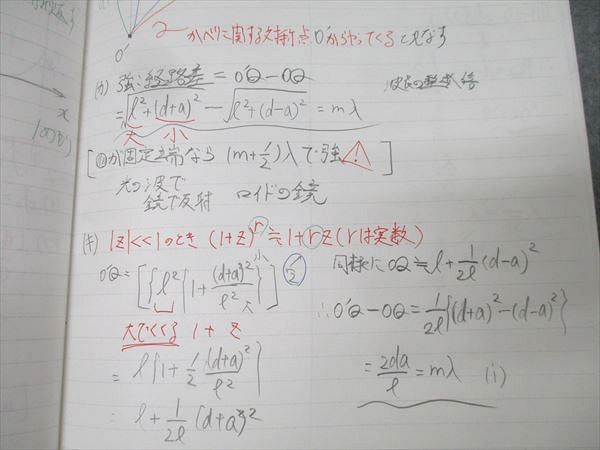 O'
かべに関する対称点O'からやってくるとみなす
(カ) 強: 経路差 = O'Q - OQ
波長の整数倍
= √ℓ²+(d+a)² - √ℓ²+(d-a)² = mλ
大 小
が固定端なら (m+1/2)λで強 ⚠
光の波で
鏡で反射 ロイドの鏡
x
(キ) |z|<<1のとき (1+z)^r ≒ 1+rz (rは実数)
O'Q = [{ℓ²{1+(d+a)²/ℓ²}]^1/2
小
大
大でくくる 1+z
= ℓ{1+1/2 (d+a)²/ℓ²}
= ℓ+1/2ℓ (d+a)²
同様に OQ ≒ ℓ+1/2ℓ (d-a)²
∴ O'Q - OQ = 1/2ℓ{(d+a)²-(d-a)²}
= 2da/ℓ = mλ (i)